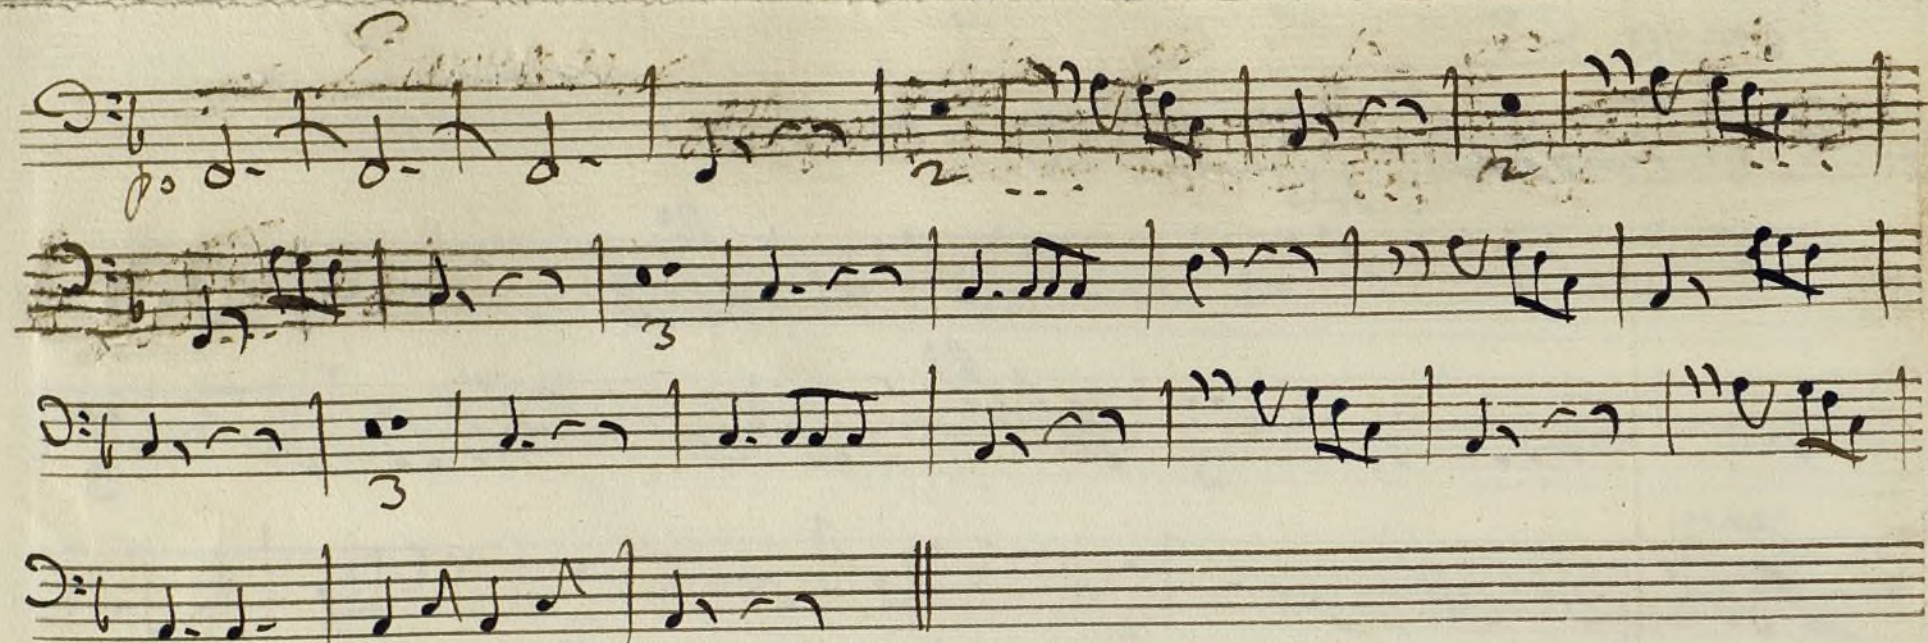 po 2 2
3
3